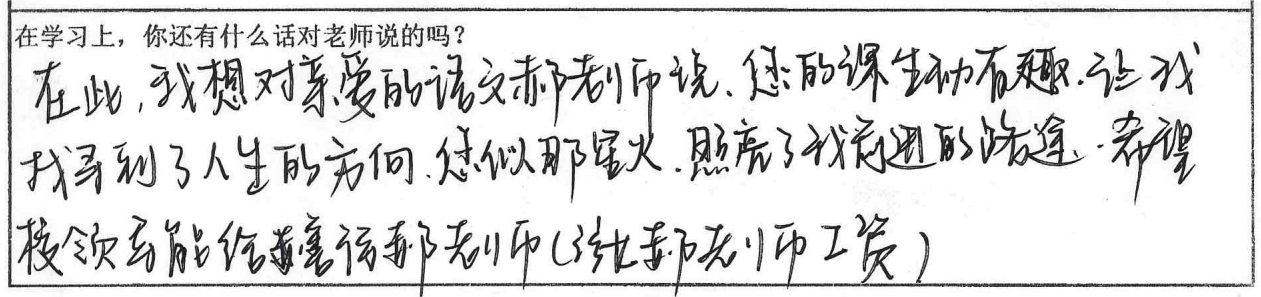 在学习上，你还有什么话对老师说的吗？
在此，我想对亲爱的语文郝老师说、您的课生动有趣.让我
找寻到了人生的方向.您似那星火.照亮了我前进的路途.希望
校领导能给郝老师(涨郝老师工资)